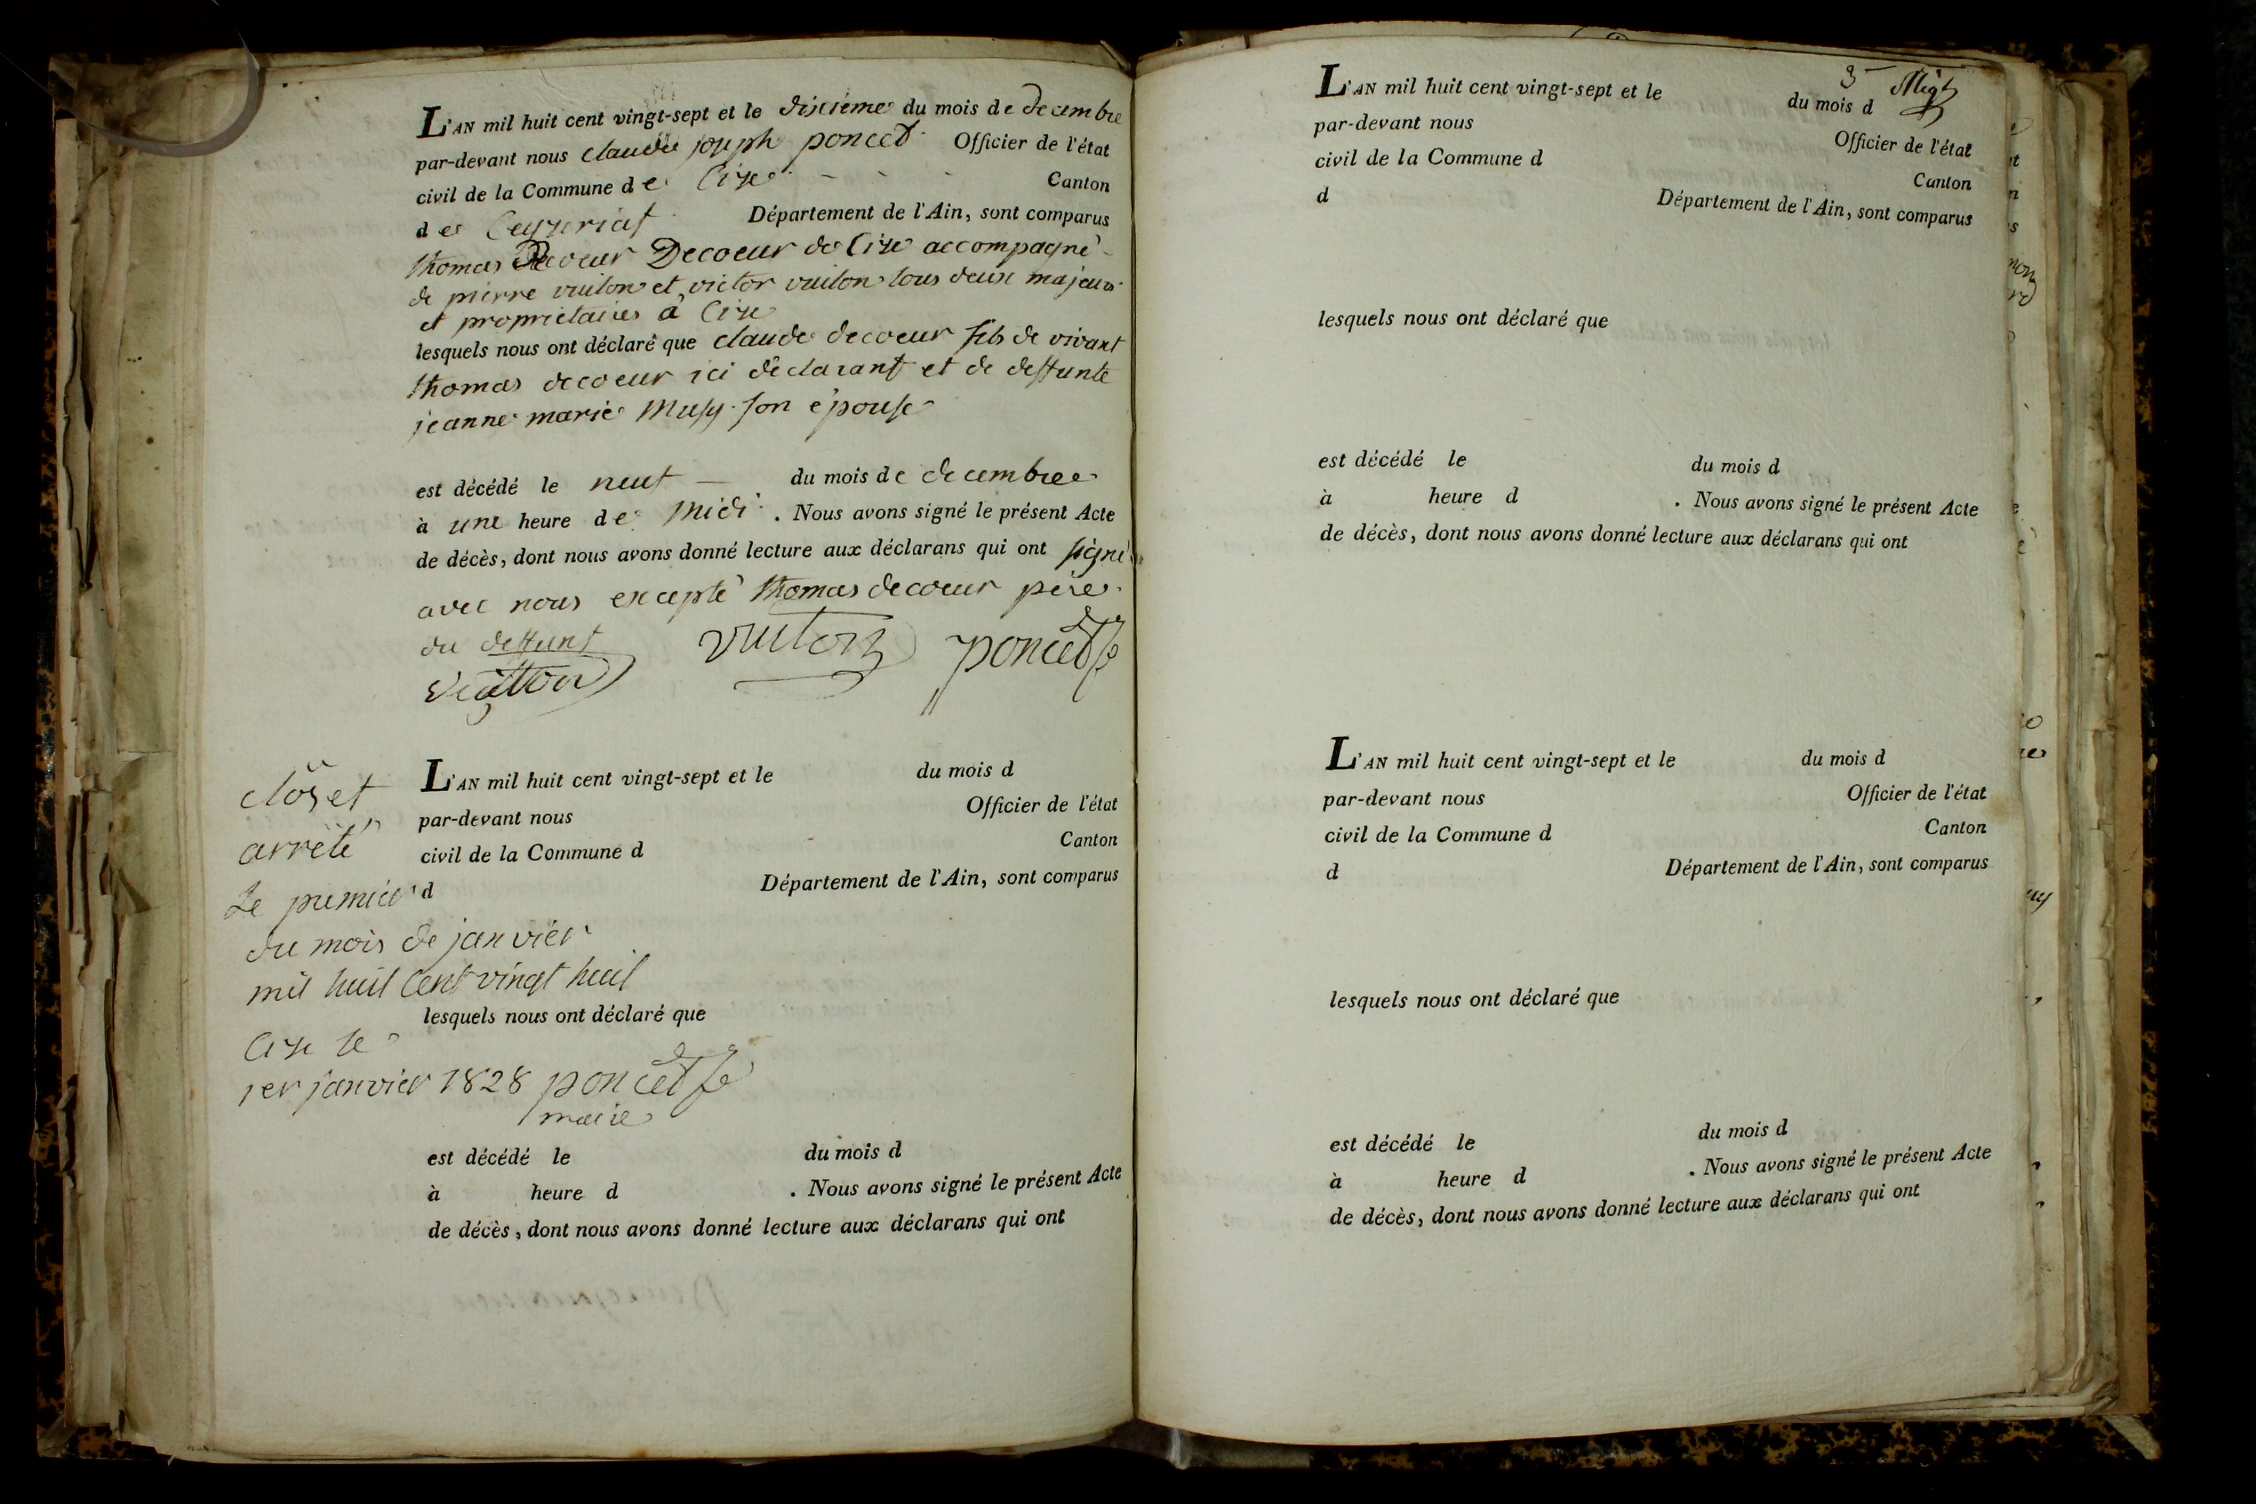 L'AN mil huit cent vingt-sept et le dixieme du mois de decembre
par-devant nous claude joseph poncet Officier de l'état
civil de la Commune de Cize - - - Canton
de Ceyzeriat Département de l'Ain, sont comparus
thomas Decoeur Decoeur de Cize accompagné
de pierre vuiton et victor vuiton tous deux majeurs
et proprietaires à Cize
lesquels nous ont déclaré que claude decoeur fils de vivant
thomas decoeur ici déclarant et de deffunte
jeanne marie Musy son épouse
est décédé le neuf — du mois de decembre
à une heure de Midi . Nous avons signé le présent Acte
de décès, dont nous avons donné lecture aux déclarans qui ont signé
avec nous excepté thomas decoeur père
du deffunt
vuiton poncet
L'AN mil huit cent vingt-sept et le du mois d
par-devant nous Officier de l'état
civil de la Commune d Canton
d Département de l'Ain, sont comparus
clôs et
arrêté
Le premier
du mois de janvier
mil huit Cent vingt huit
lesquels nous ont déclaré que
Cize le
1er janvier 1828 poncet
maire
est décédé le du mois d
à heure d . Nous avons signé le présent Acte
de décès, dont nous avons donné lecture aux déclarans qui ont
3
L'AN mil huit cent vingt-sept et le du mois d
par-devant nous Officier de l'état
civil de la Commune d Canton
d Département de l'Ain, sont comparus
lesquels nous ont déclaré que
est décédé le du mois d
à heure d . Nous avons signé le présent Acte
de décès, dont nous avons donné lecture aux déclarans qui ont
L'AN mil huit cent vingt-sept et le du mois d
par-devant nous Officier de l'état
civil de la Commune d Canton
d Département de l'Ain, sont comparus
lesquels nous ont déclaré que
est décédé le du mois d
à heure d . Nous avons signé le présent Acte
de décès, dont nous avons donné lecture aux déclarans qui ont